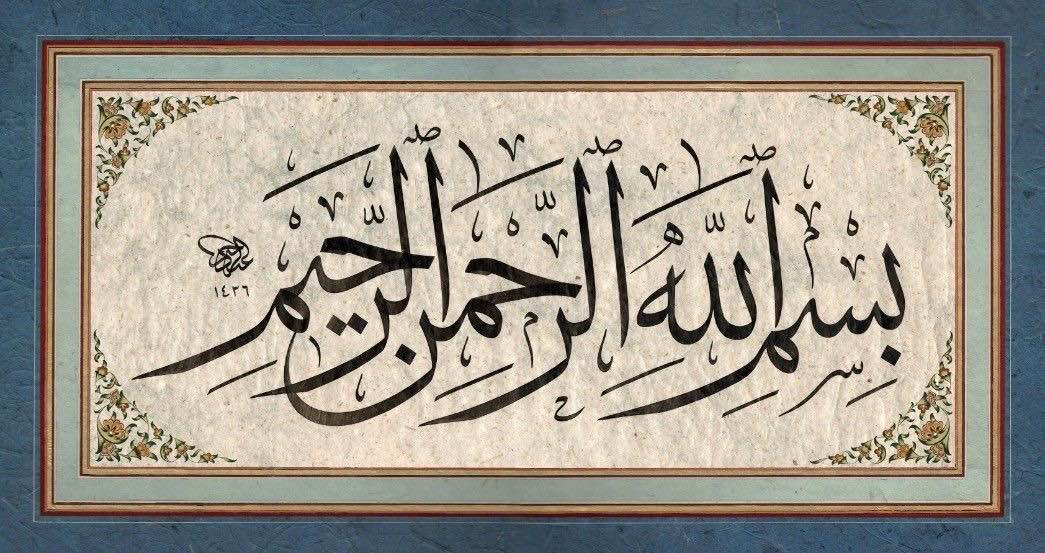 بِسْمِ اللّٰهِ الرَّحْمٰنِ الرَّحِيمِ
١٤٣٦